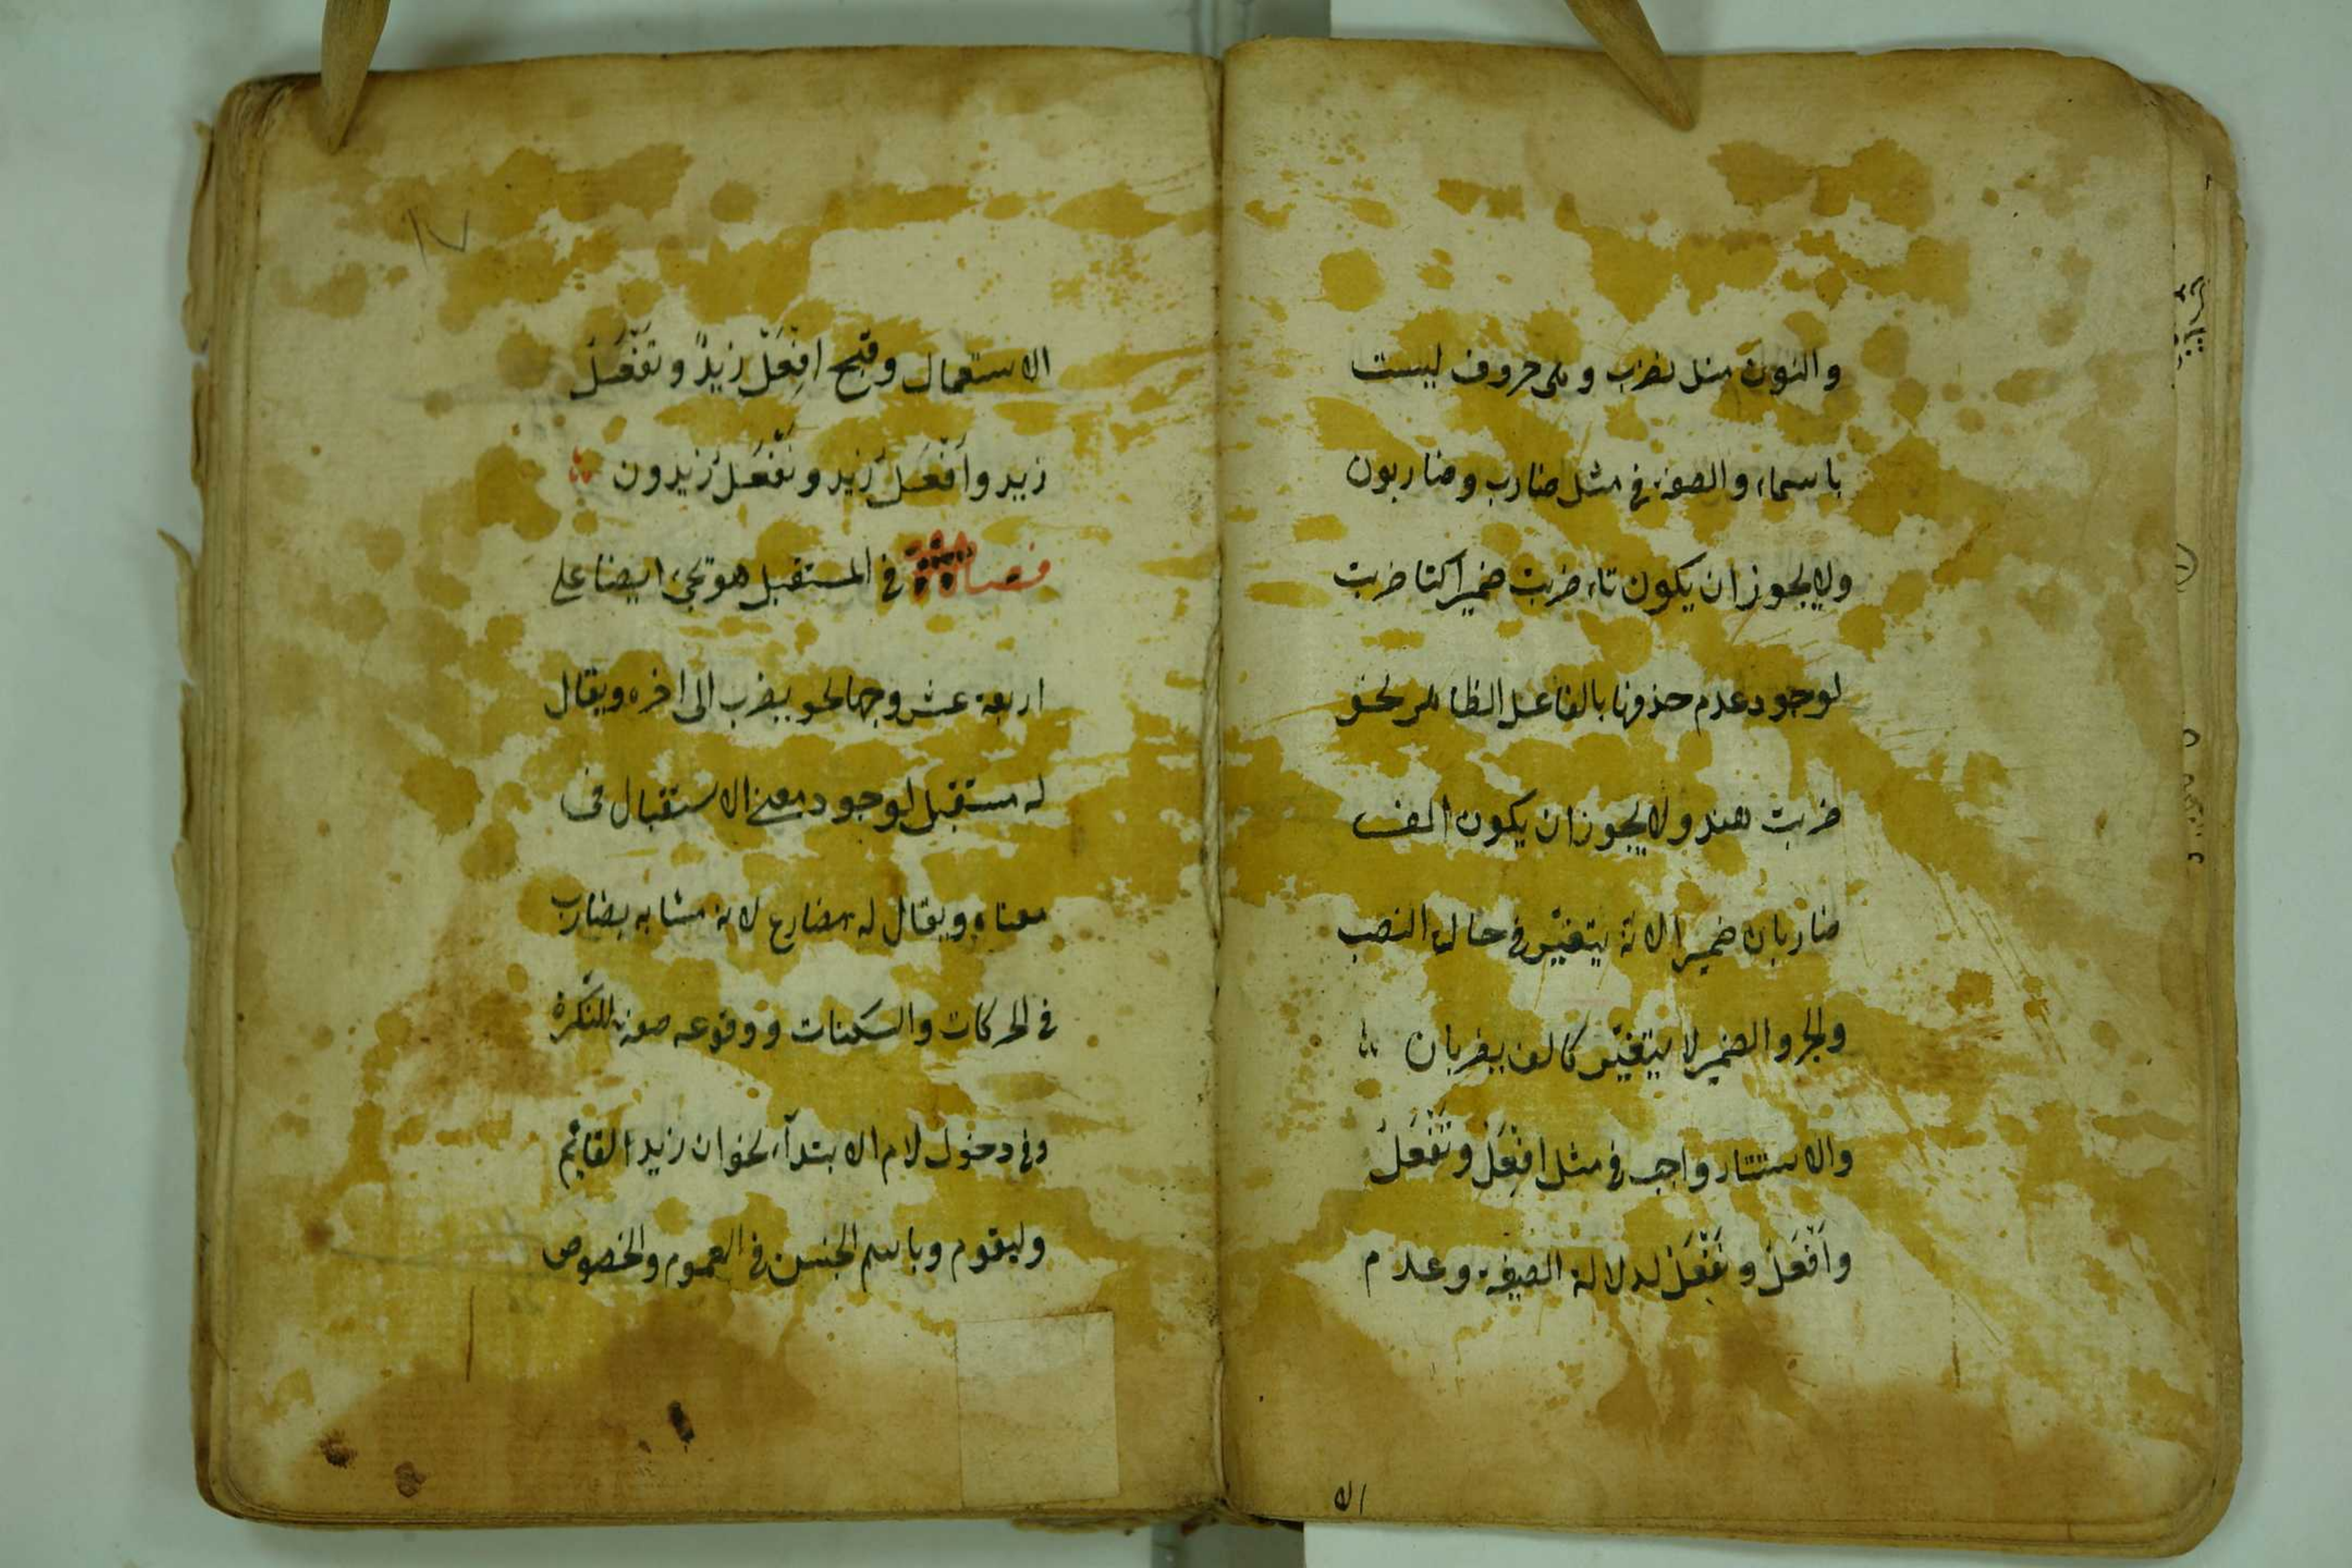 والنون مثل نضرب وهى حروف ليست
باسماء والصفة فى مثل ضارب وضاربون
ولا يجوز ان يكون تاء ضربت ضميرا كتا ضربت
لوجود عدم حذفها بالفاعل الظاهر نحو
ضربت هند ولا يجوز ان يكون الف
ضاربان ضميرا لانه يتغيّر فى حالة النصب
والجر والضمير لا يتغيّر كالف يضربان
والاستتار واجب فى مثل افْعَلْ وتَفْعَلُ
وأَفْعَلُ ونَفْعَلُ لدلالة الصيغة وعدم
الا
١٧
الاستعمال وقبح افْعَلْ زيدٌ وتَفْعَلُ
زيد وأَفْعَلُ زيد ونَفْعَلُ زيدون
فصل فى المستقبل هو تجئ ايضا على
اربعة عشر وجها نحو يضرب الى اخره ويقال
له مستقبل لوجود معنى الاستقبال فى
معناه ويقال له مضارع لانه مشابه بضارب
فى الحركات والسكنات ووقوعه صفة للنّكرة
وفى دخول لام الابتدآء نحو ان زيد القائم
وليقوم وباسم الجنس فى العموم والخصوص